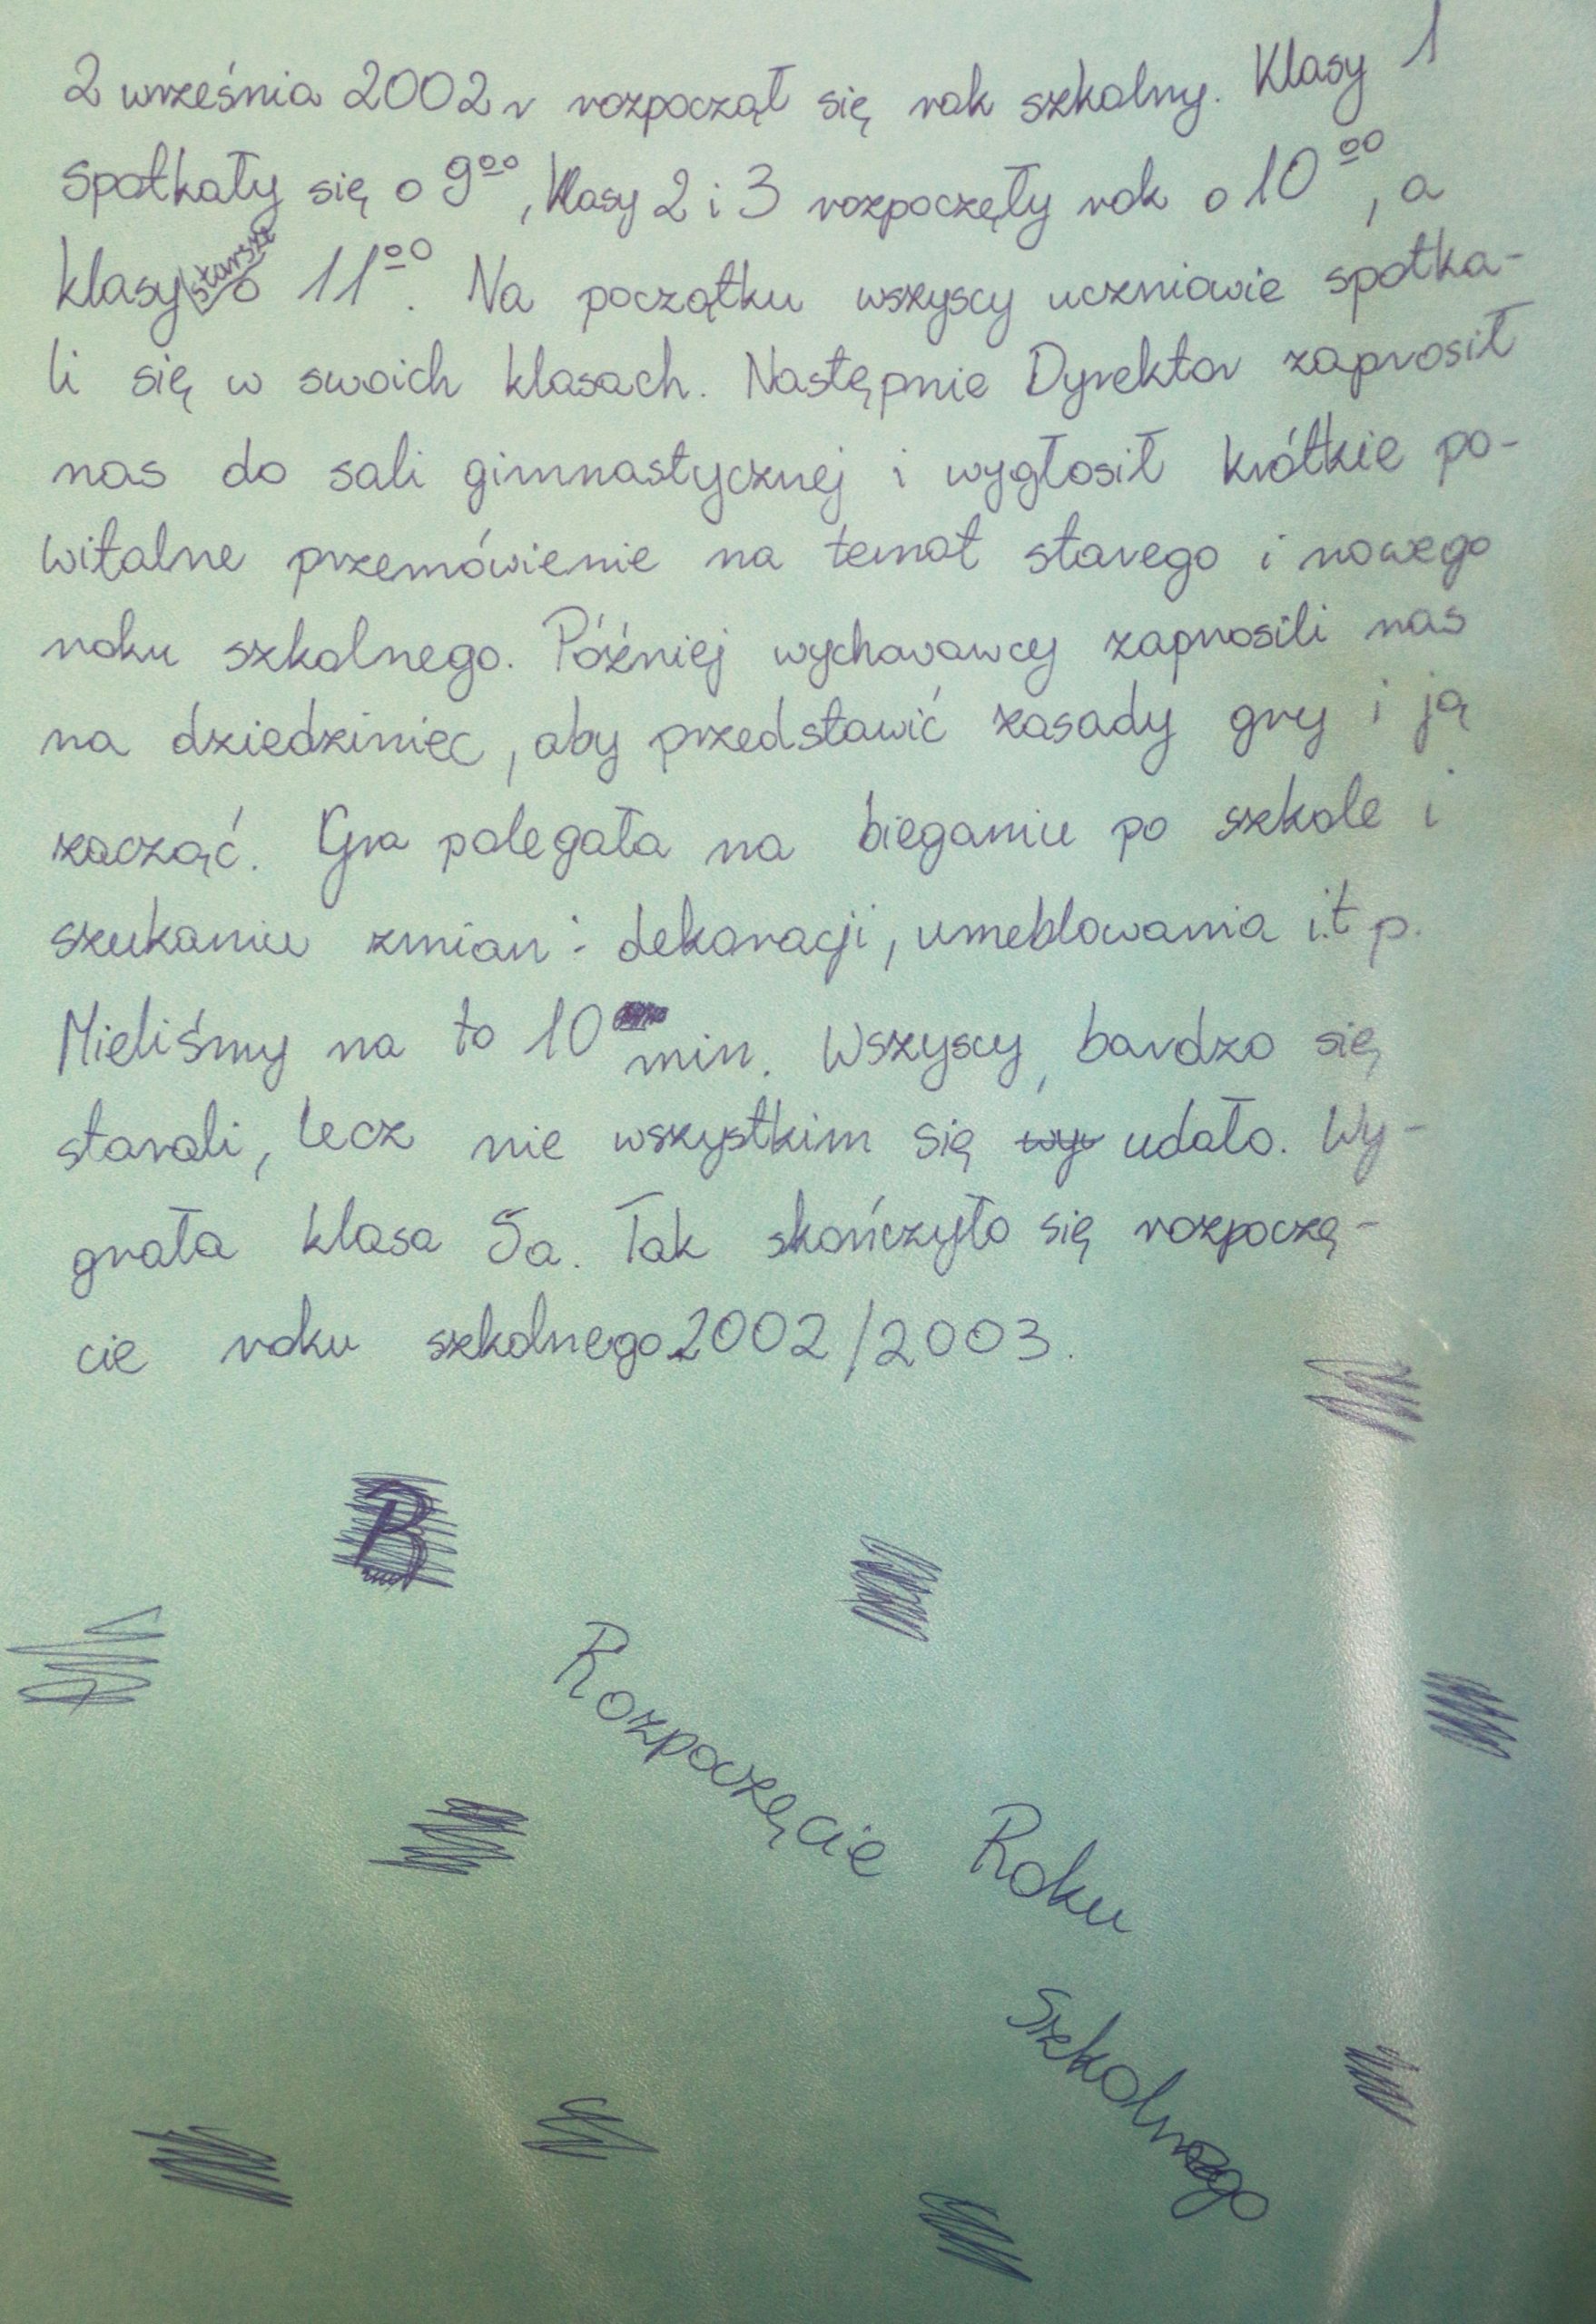 2 września 2002 r rozpoczął się rok szkolny. Klasy 1
spotkały się o 9⁰⁰, klasy 2 i 3 rozpoczęły rok o 10⁰⁰, a
klasy starsze o 11⁰⁰. Na początku wszyscy uczniowie spotka-
li się w swoich klasach. Następnie Dyrektor zaprosił
nas do sali gimnastycznej i wygłosił krótkie po-
witalne przemówienie na temat starego i nowego
roku szkolnego. Później wychowawcy zaprosili nas
na dziedziniec, aby przedstawić zasady gry i ją
zacząć. Gra polegała na bieganiu po szkole i
szukaniu zmian: dekoracji, umeblowania i.t p.
Mieliśmy na to 10 min. Wszyscy, bardzo się
starali, lecz nie wszystkim się wy udało. Wy-
grała klasa 5a. Tak skończyło się rozpoczę-
cie roku szkolnego 2002/2003.
B
Rozpoczęcie Roku
Szkolnego